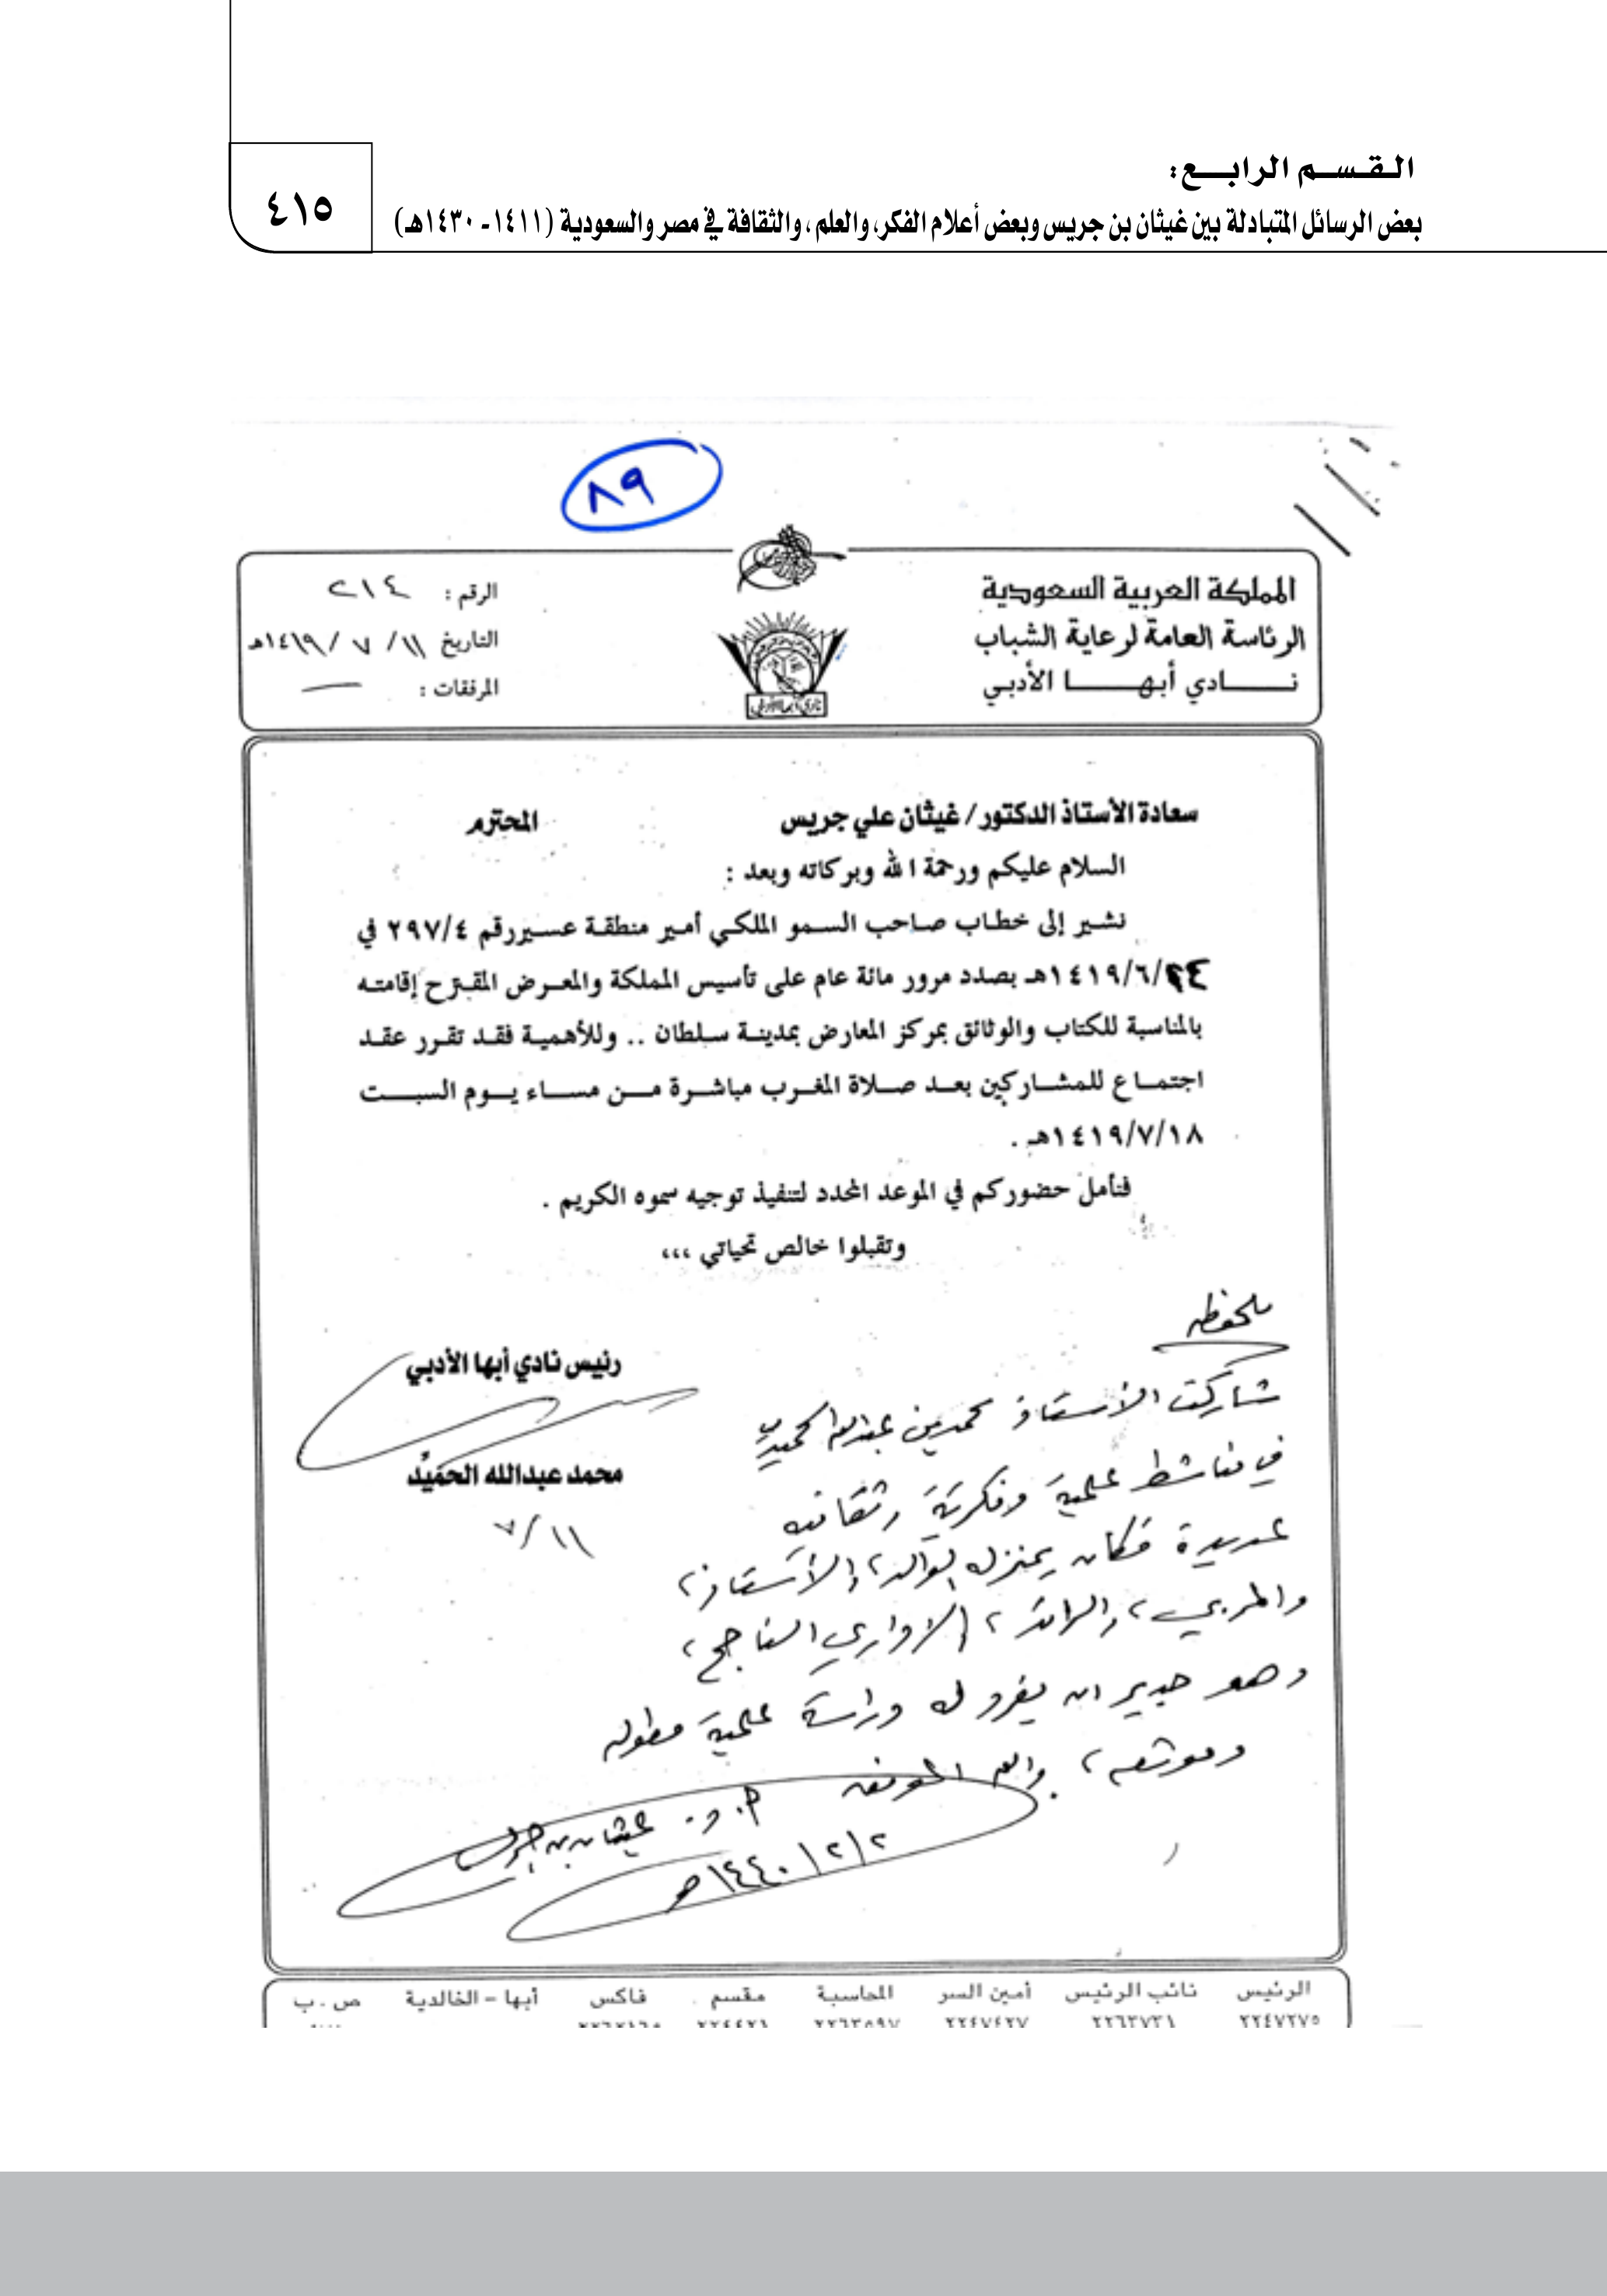 القسم الرابع:
بعض الرسائل المتبادلة بين غيثان بن جريس وبعض أعلام الفكر، والعلم، والثقافة في مصر والسعودية (١٤١١- ١٤٣٠هـ)
٤١٥
٨٩
المملكة العربية السعودية
الرئاسة العامة لرعاية الشباب
نادي أبها الأدبي
نادي أبها الأدبي
الرقم : ٢١٤
التاريخ ١١/ ٧ /١٤١٩هـ
المرفقات : ـــ
سعادة الأستاذ الدكتور/ غيثان علي جريس المحترم
السلام عليكم ورحمة الله وبركاته وبعد :
نشير إلى خطاب صاحب السمو الملكي أمير منطقة عسير رقم ٢٩٧/٤ في
٢٤/٦/١٤١٩هـ بصدد مرور مائة عام على تأسيس المملكة والمعرض المقترح إقامته
بالمناسبة للكتاب والوثائق بمركز المعارض بمدينة سلطان .. وللأهمية فقد تقرر عقد
اجتماع للمشاركين بعد صلاة المغرب مباشرة من مساء يوم السبت
١٨/٧/١٤١٩هـ .
فنأمل حضوركم في الموعد المحدد لتنفيذ توجيه سموه الكريم .
وتقبلوا خالص تحياتي ،،،
رئيس نادي أبها الأدبي
محمد عبدالله الحميّد
١١/ ٧
ملحوظه
شاركت الأستاذ محمد بن عبدالله الحميد
في مناشط علمية وفكرية وثقافيه
عديدة فكان بمنزله الوالد، والأستاذ،
والمربي، والرائد، الاداري الناجح،
وهو جدير ان يفرد له دراسة علمية مطوله
وموثقه، والله الموفق
أ. د. غيثان بن جريس
٢/٢/١٤٤٠هـ
الرئيس نائب الرئيس أمين السر المحاسبة مقسم فاكس أبها - الخالدية ص . ب
٢٢٤٧٢٧٥ ٢٢٦٣٧٣١ ٢٢٤٧٤٢٧ ٢٢٦٣٥٩٧ ٢٢٤٤٢١